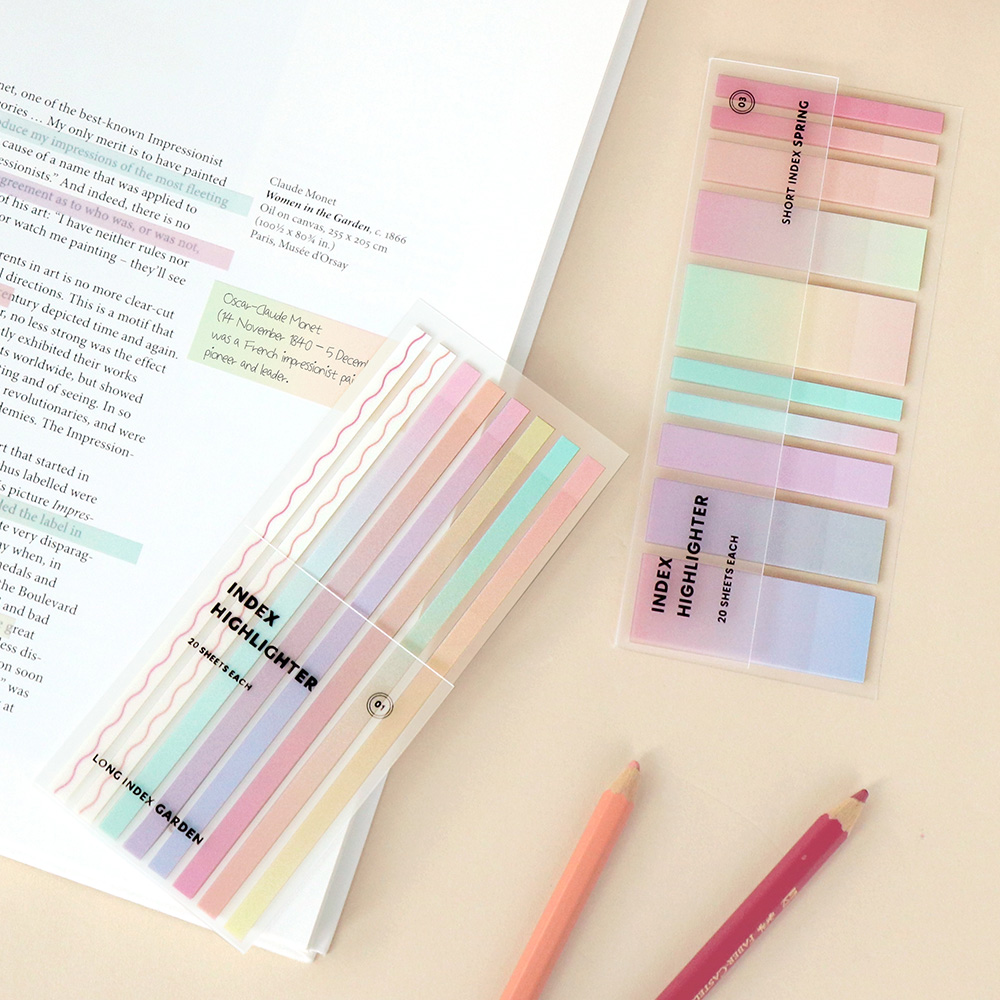 net, one of the best-known Impressionist
ories … My only merit is to have painted
oduce my impressions of the most fleeting
cause of a name that was applied to
essionists." And indeed, there is no
agreement as to who was, or was not,
of his art: "I have neither rules nor
or watch me painting – they'll see
rents in art is no more clear-cut
l directions. This is a motif that
entury depicted time and again.
r, no less strong was the effect
tly exhibited their works
ts worldwide, but showed
ting and of seeing. In so
revolutionaries, and were
demies. The Impression-
rt that started in
hus labelled were
s picture Impres-
led the label in
te very disparag-
y when, in
nedals and
the Boulevard
and bad
great
less dis-
on soon
" was
at
Claude Monet
Women in the Garden, c. 1866
Oil on canvas, 255 x 205 cm
(100½ x 80¾ in.)
Paris, Musée d'Orsay
Oscar-Claude Monet
(14 November 1840 – 5 Decem
was a French impressionist pai
pioneer and leader.
INDEX
HIGHLIGHTER
20 SHEETS EACH
01
LONG INDEX GARDEN
03
SHORT INDEX SPRING
INDEX
HIGHLIGHTER
20 SHEETS EACH
FABER-CASTEL